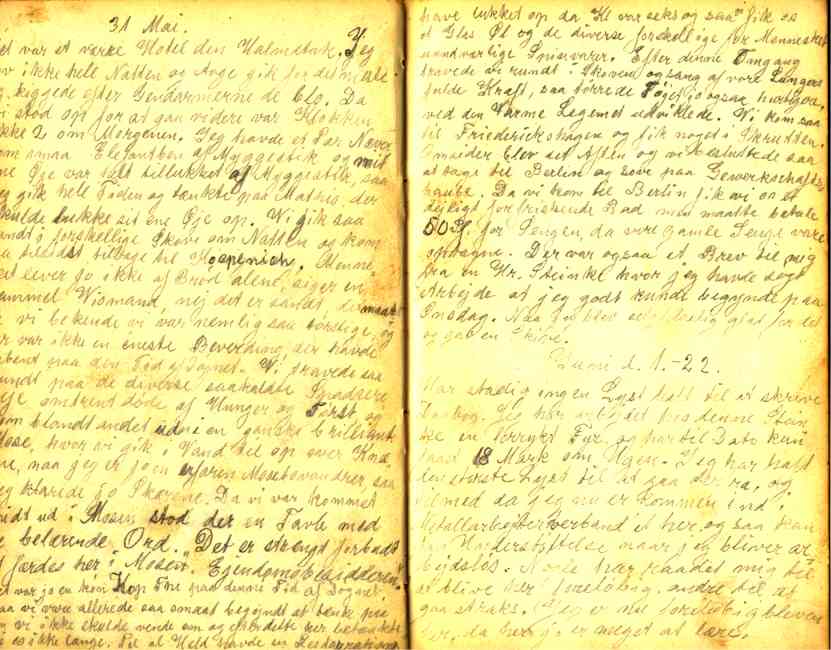 31 Mai.
et var et værre Hotel den Halmstak. Jeg
ikke hele Natten og Aage gik for det meste
og kiggede efter Gendarmerne de Clo. Da
vi stod op for at gaa videre var Klokken
ikke 2 om Morgenen. Jeg havde et Par Næver
om smaa Elefantben af Myggestik og mit
ne Øje var helt tillukket af Myggestik, saa
jeg gik hele Tiden og tænkte paa Mathis, der
skulde lukke sit ene Øje op. Vi gik saa
rundt i forskellige Skove om Natten og kom
tilsidst tilbage til Koepenick. Menne
et lever jo ikke af Brød alene, siger en
gammel Vismand, nej det er sandt, det maatte
vi bekende vi var nemlig saa tørstige og
var ikke en eneste Beværtning der havde
aabent paa den Tid af Døgnet. Vi travede saa
rundt paa de diverse saakaldte Spadsere
omtrent døde af Hunger og Tørst og
om blandt andet ud i en ganske brilliant
Mose, hvor vi gik i Vand til op over Knæ
ne, naa jeg er jo en erfaren Mosebevandrer, saa
jeg klarede jo Skærene. Da vi var kommet
midt ud i Mosen stod der en Tavle med
belærende Ord. "Det er strengt forbudt
at færdes her i Mosen. Ejendomsbesidderen."
Det var jo en køn Kop The paa denne Tid af Døgnet.
vi være allerede saa smaat begyndt at tænke paa
vi ikke skulde vende om og
os ikke længe. Til al Held havde en Restauration
have lukket op da Kl var seks og saa fik os
et Glas Øl og de diverse forskellige for Mennesket
uundværlige Spisevarer. Efter denne Omgang
travede vi rundt i Skoven og sang af vore Lungers
fulde Kraft, saa tørrede Tøjet jo ogsaa hurtigere,
ved den Varme Legemet udviklede. Vi kom saa
til Friederichshagen og fik noget i Skrutten.
Omsider blev det Aften og vi besluttede saa
at tage til Berlin og sove paa Gewerkschafts
hause. Da vi kom til Berlin fik vi os et
dejligt forfriskende Bad men maatte betale
50 Pf. for Sengen, da vore gamle Senge vare
optagne. Der var ogsaa et Brev til mig
fra en Hr. Steinke hvor jeg havde søgt
Arbejde at jeg godt kunde begynde paa
Onsdag. Naa jeg blev glad for det
og gav en Skive.
Juni d. 1.-22.
Har stadig ingen Lyst haft til at skrive
Dagbog. Jeg har arbejdet hos denne Stein
ke en forrykt Fyr og har til Dato kun
faaet 18 Mark om Ugen. Jeg har haft
den største Lyst til at gaa derfra, og
tilmed da jeg nu er kommen ind i
Metallarbeiterverband et her, og saa kan
faa Understøttelse naar jeg bliver ar-
bejdsløs. Nogle har raadet mig til
at blive her foreløbig, andre til at
gaa straks. Jeg er nu foreløbig bleven
her, da her jo er meget at lære.